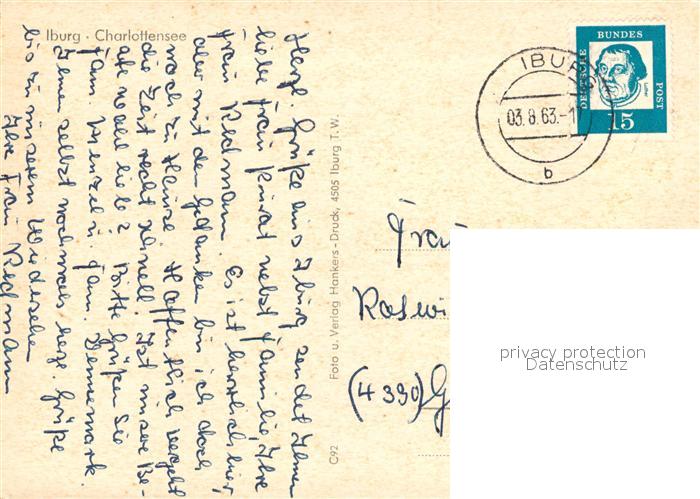 Iburg · Charlottensee
Herzl. Grüße aus Iburg sendet Ihnen
liebe Frau nebst Familie, Ihre
Frau Rechmann. Es ist herrlich hier,
aber mit den Gedanken bin ich doch
noch zu Hause. Hoffentlich vergeht
die Zeit recht schnell. Ist unser Be-
ate wohl lieb? Bitte grüßen Sie
Fam. Wenzel u. Fam. Dennemark.
Ihnen selbst nochmals herzl. Grüße
bis zu unserem Wiedersehen
Ihre Frau Rechmann
C92 Foto u. Verlag Hankers-Druck, 4505 Iburg T.W.
DEUTSCHE BUNDES POST
Luther
15
IBURG
03.8.63.-1
b
Frau
Roswi
(4390) G
privacy protection
Datenschutz